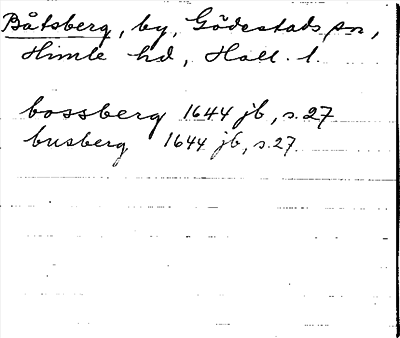 Båtsberg, by, Gödestads sn,
Himle hd, Hall. l.
bossberg 1644 jb, s. 27
busberg 1644 jb, s. 27